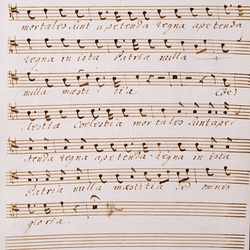 mortales sunt apetenda regna apetenda
regna in ista Patria nulla
nulla mæsti tia. Coe=
=lestia Coelestia mortales sunt ape:
tenda regna apetenda regna in ista
Patria nulla mæstitia sed omnis
gloria.